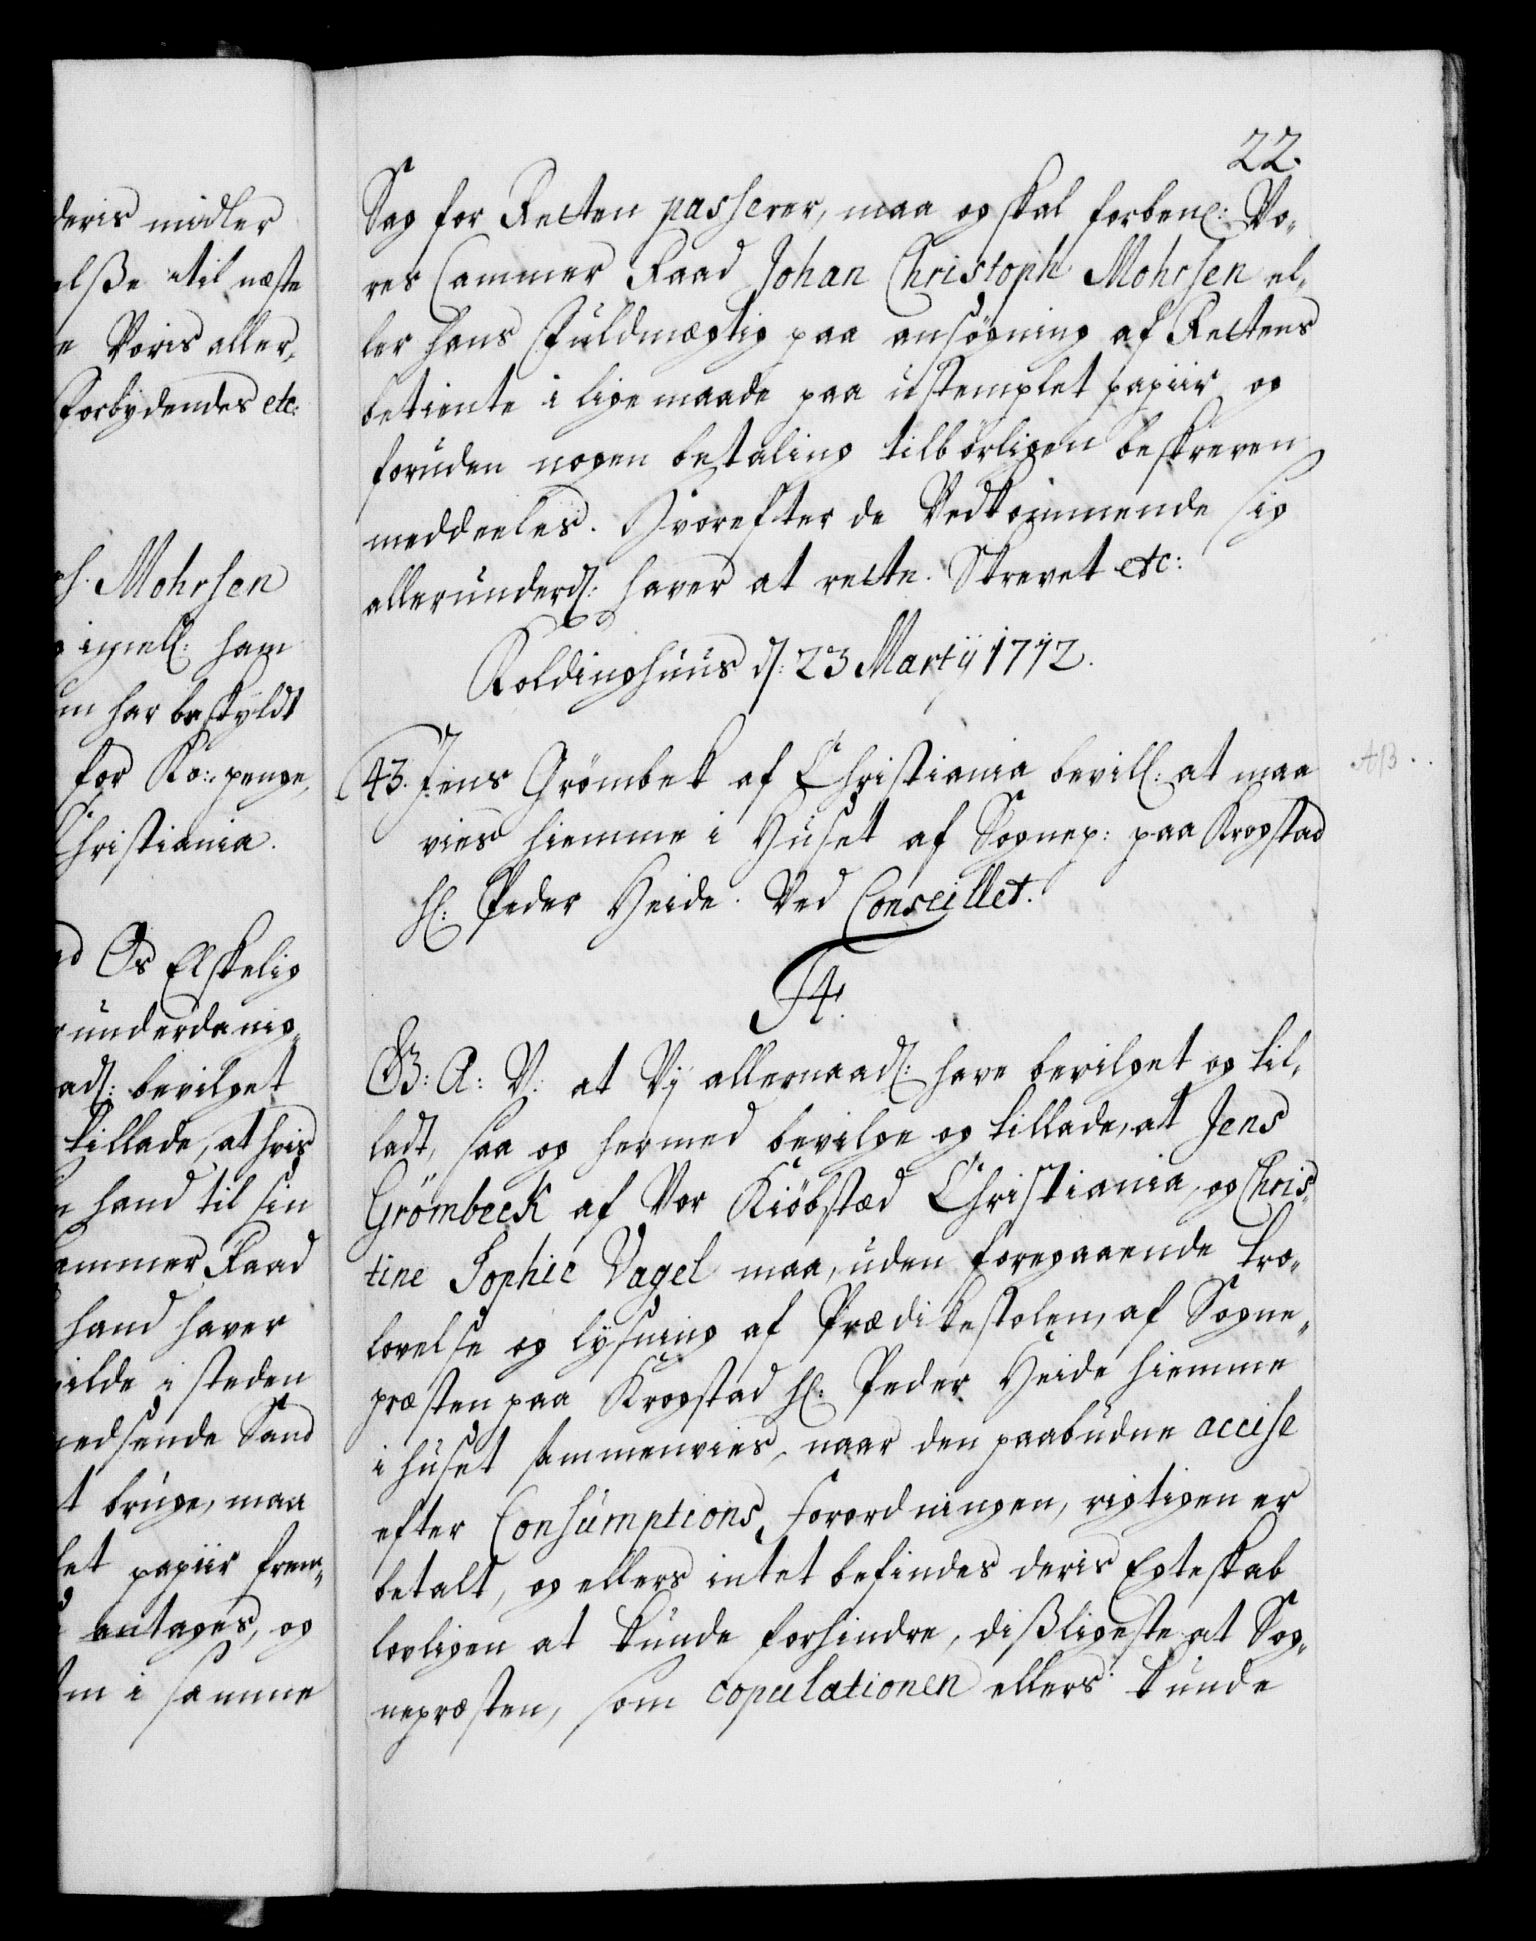 deris midler
elße til næste
e Voris aller,
forbydendes etc:
h. Mohrsen
ignell: ham
m har beskyldt
for Ko: penge,
Christiania.
d Os Elskelig
underdanig„
ad: bevilget
tillade, at hvis
hand til sin
ammer Raad
hand haver
ilde i steden
edsende Sand
t bruge, maa
et papiir frem„
antages, og
m i samme
22.
Sag for Retten passerer, maa og skal forben: Vo„
res Cammer Raad Johan Christoph Mohrsen el„
ler hans Fuldmægtig paa ansøgning af Rettens
betiente i lige maade paa ustemplet papiir og
foruden nogen betaling tilbørligen beskreven
meddeeles. Hvorefter de Vedkommende sig
allerunderd: haver at rette. Skrevet etc:
Koldinghuus d: 23 Martij 1712.
43. Jens Grömbek af Christiania bevill: at maa
vies hiemme i Huset af Sognep: paa Krogstad
H: Peder Heide. Ved Conseillet.
F4.
G: A: V: at Vj allernaad: have bevilget og til„
ladt, saa og hermed bevilge og tillade, at Jens
Grömbeek af Vor Kiöbstæd Christiania, og Chris„
tine Sophie Vagel maa, uden foregaaende tro„
lovelse og lysning af Prædikestolen, af Sogne„
præsten paa Krogstad H: Peder Heide hiemme
i huset sammenvies, naar den paabudne accise
efter Consumptions Forordningen, rigtigen er
betalt, og ellers intet befindes deris Egteskab
lovligen at kunde forhindre, dißligeste at Sog„
nepræsten, som copulationen ellers kunde